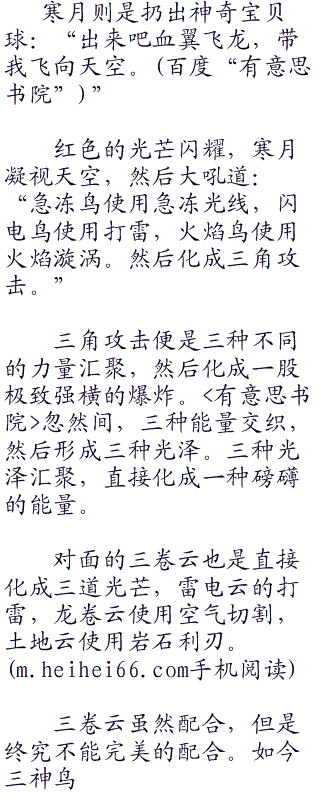 寒月则是扔出神奇宝贝
球：“出来吧血翼飞龙，带
我飞向天空。(百度“有意思
书院”)”
红色的光芒闪耀，寒月
凝视天空，然后大吼道：
“急冻鸟使用急冻光线，闪
电鸟使用打雷，火焰鸟使用
火焰漩涡。然后化成三角攻
击。”
三角攻击便是三种不同
的力量汇聚，然后化成一股
极致强横的爆炸。<有意思书
院>忽然间，三种能量交织，
然后形成三种光泽。三种光
泽汇聚，直接化成一种磅礴
的能量。
对面的三卷云也是直接
化成三道光芒，雷电云的打
雷，龙卷云使用空气切割，
土地云使用岩石利刃。
(m.heihei66.com手机阅读)
三卷云虽然配合，但是
终究不能完美的配合。如今
三神鸟